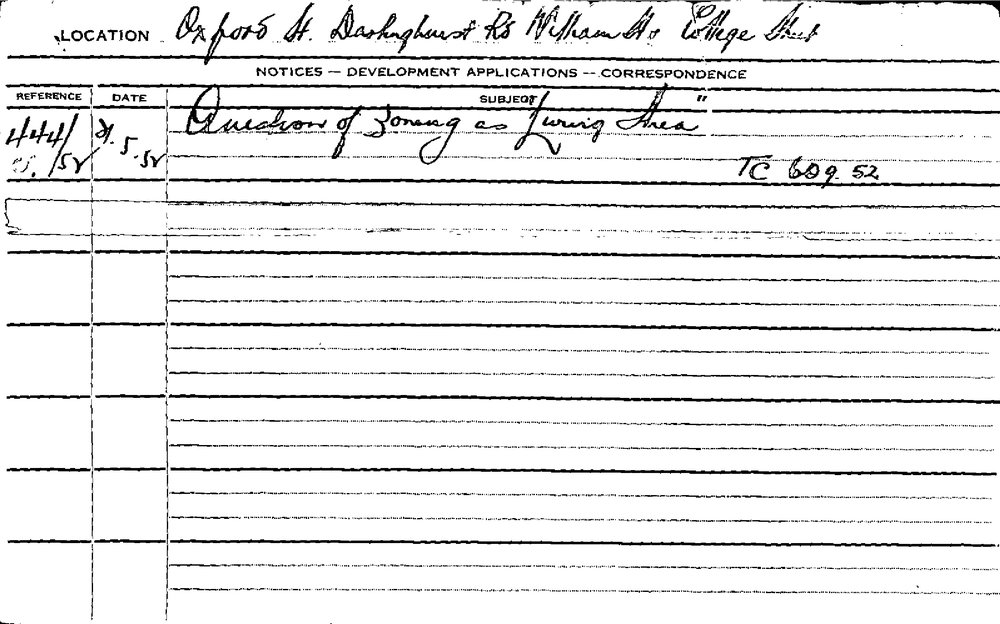 LOCATION Oxford St. Darlinghurst Rd William St & College Street
NOTICES — DEVELOPMENT APPLICATIONS — CORRESPONDENCE
REFERENCE DATE SUBJECT
444/ 21.5.52 Question of Zoning as Living Area"
/52
TC 609.52